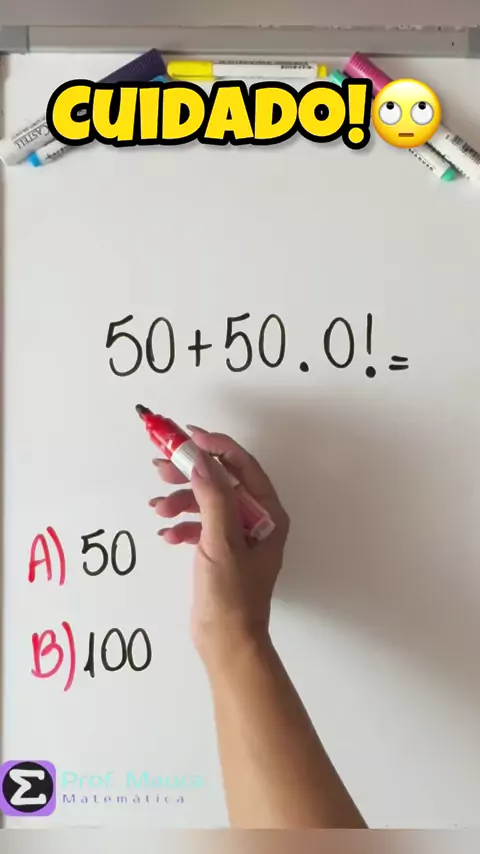 CUIDADO!🙄
50+50.0!=
A) 50
B) 100
Σ
Prof. Maura
Matemática